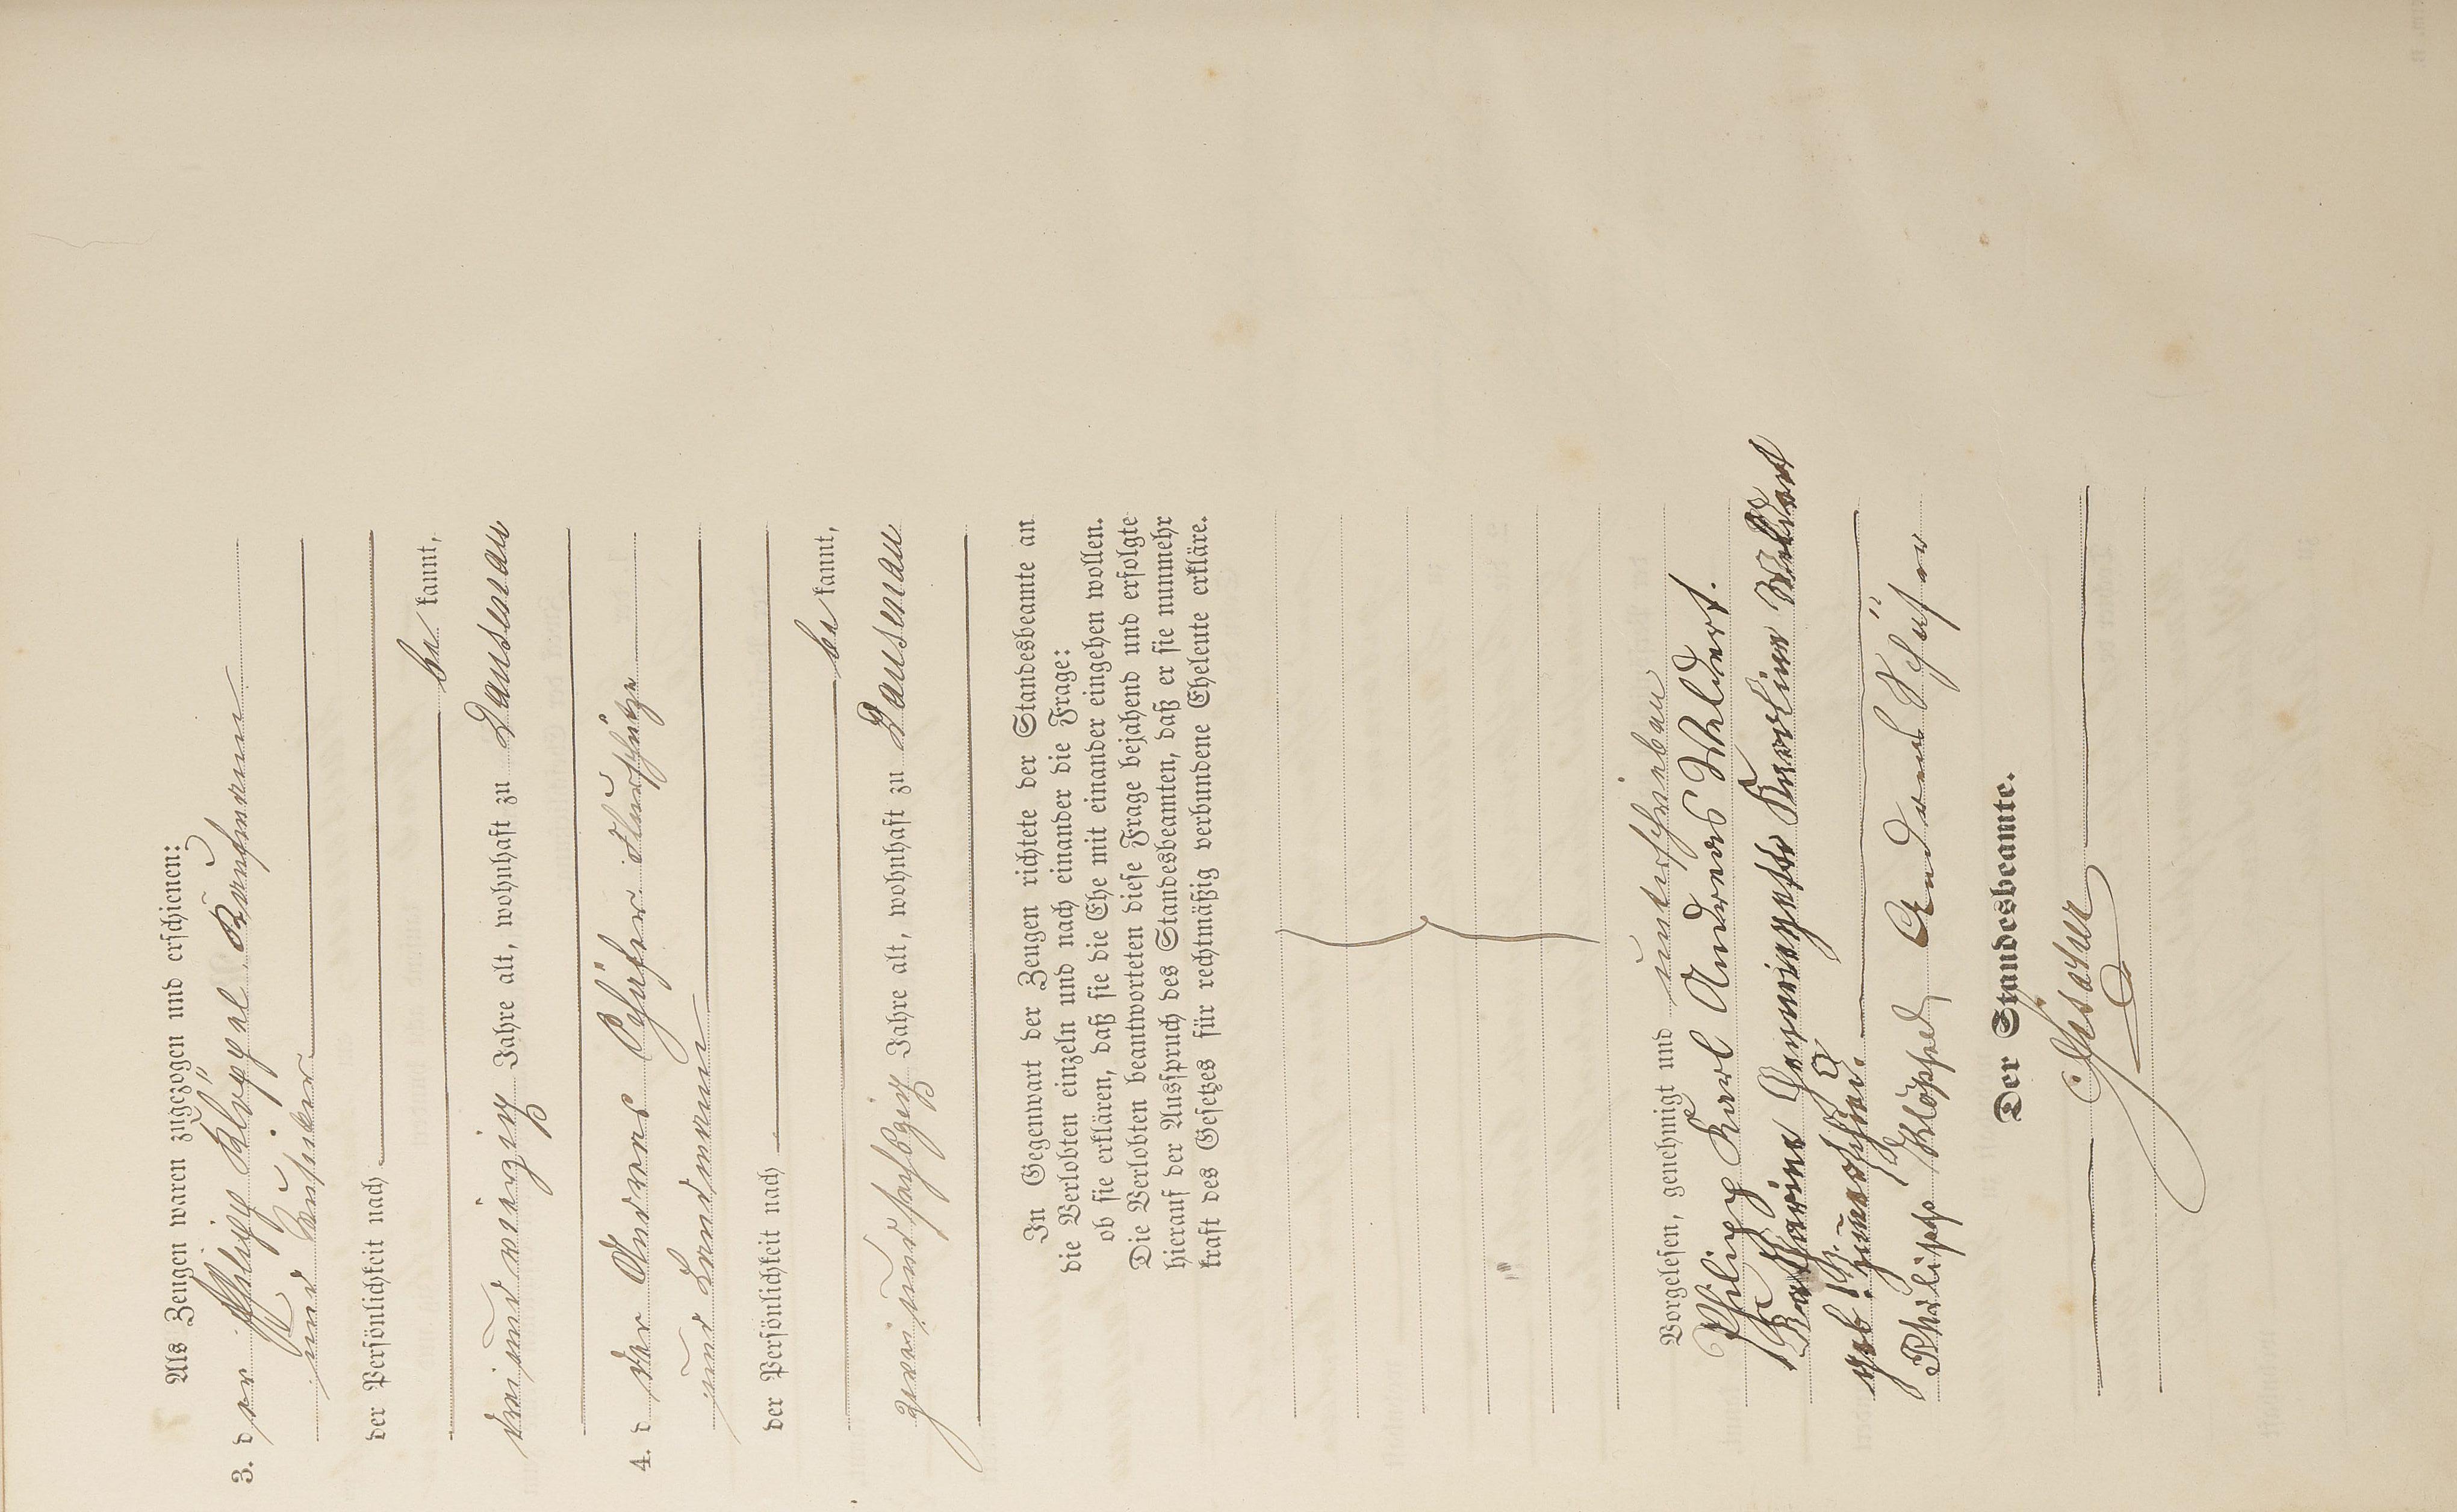 Als Zeugen waren zugezogen und erschienen:
3. der Philipp Klöppel Kaufmann
und
der Persönlichkeit nach
bekannt,
dreiundvierzig Jahre alt, wohnhaft zu Dausenau
4. d der Andreas Schäfer Flurschütze
und Landmann
der Persönlichkeit nach
bekannt,
zweiundsechszig Jahre alt, wohnhaft zu Dausenau
In Gegenwart der Zeugen richtete der Standesbeamte an
die Verlobten einzeln und nach einander die Frage:
ob sie erklären, daß sie die Ehe mit einander eingehen wollen.
Die Verlobten beantworteten diese Frage bejahend und erfolgte
hierauf der Ausspruch des Standesbeamten, daß er sie nunmehr
kraft des Gesetzes für rechtmäßig verbundene Eheleute erkläre.
Vorgelesen, genehmigt und unterschrieben
Philipp Karl Andreas Weldert.
Katharine Henriegette Karline Weldert
geb.
Philipp Klöppel Andreas Schäfer
Der Standesbeamte.